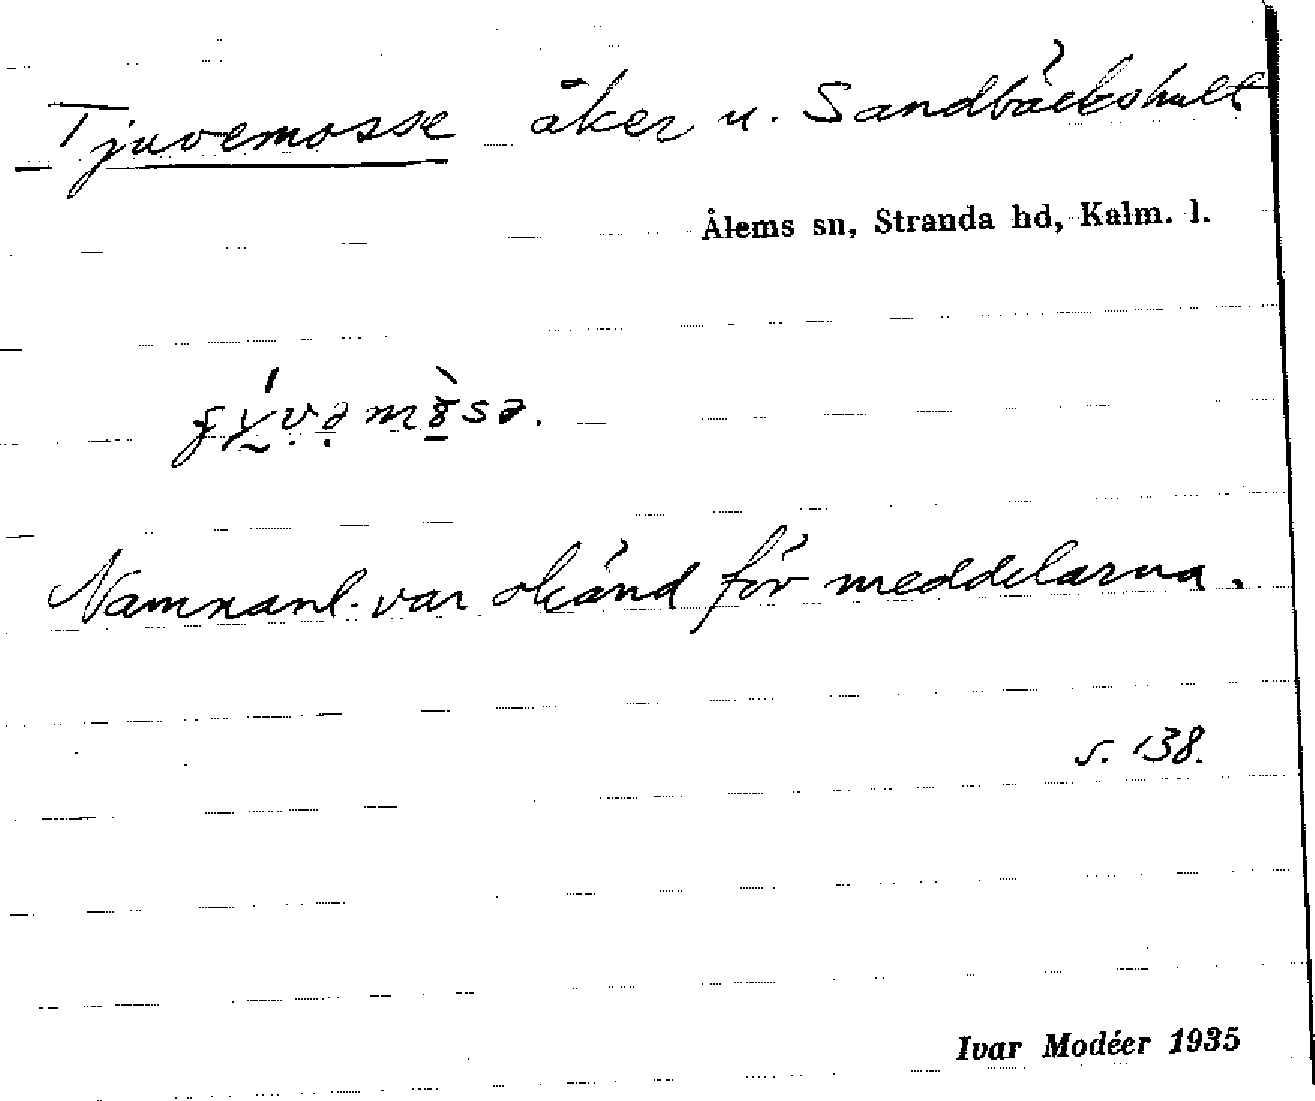 Tjuvemosse åker u. Sandbäckshult
Ålems sn, Stranda hd, Kalm. l.
Namnanl. var okänd för meddelarna.
s. 138.
Ivar Modéer 1935